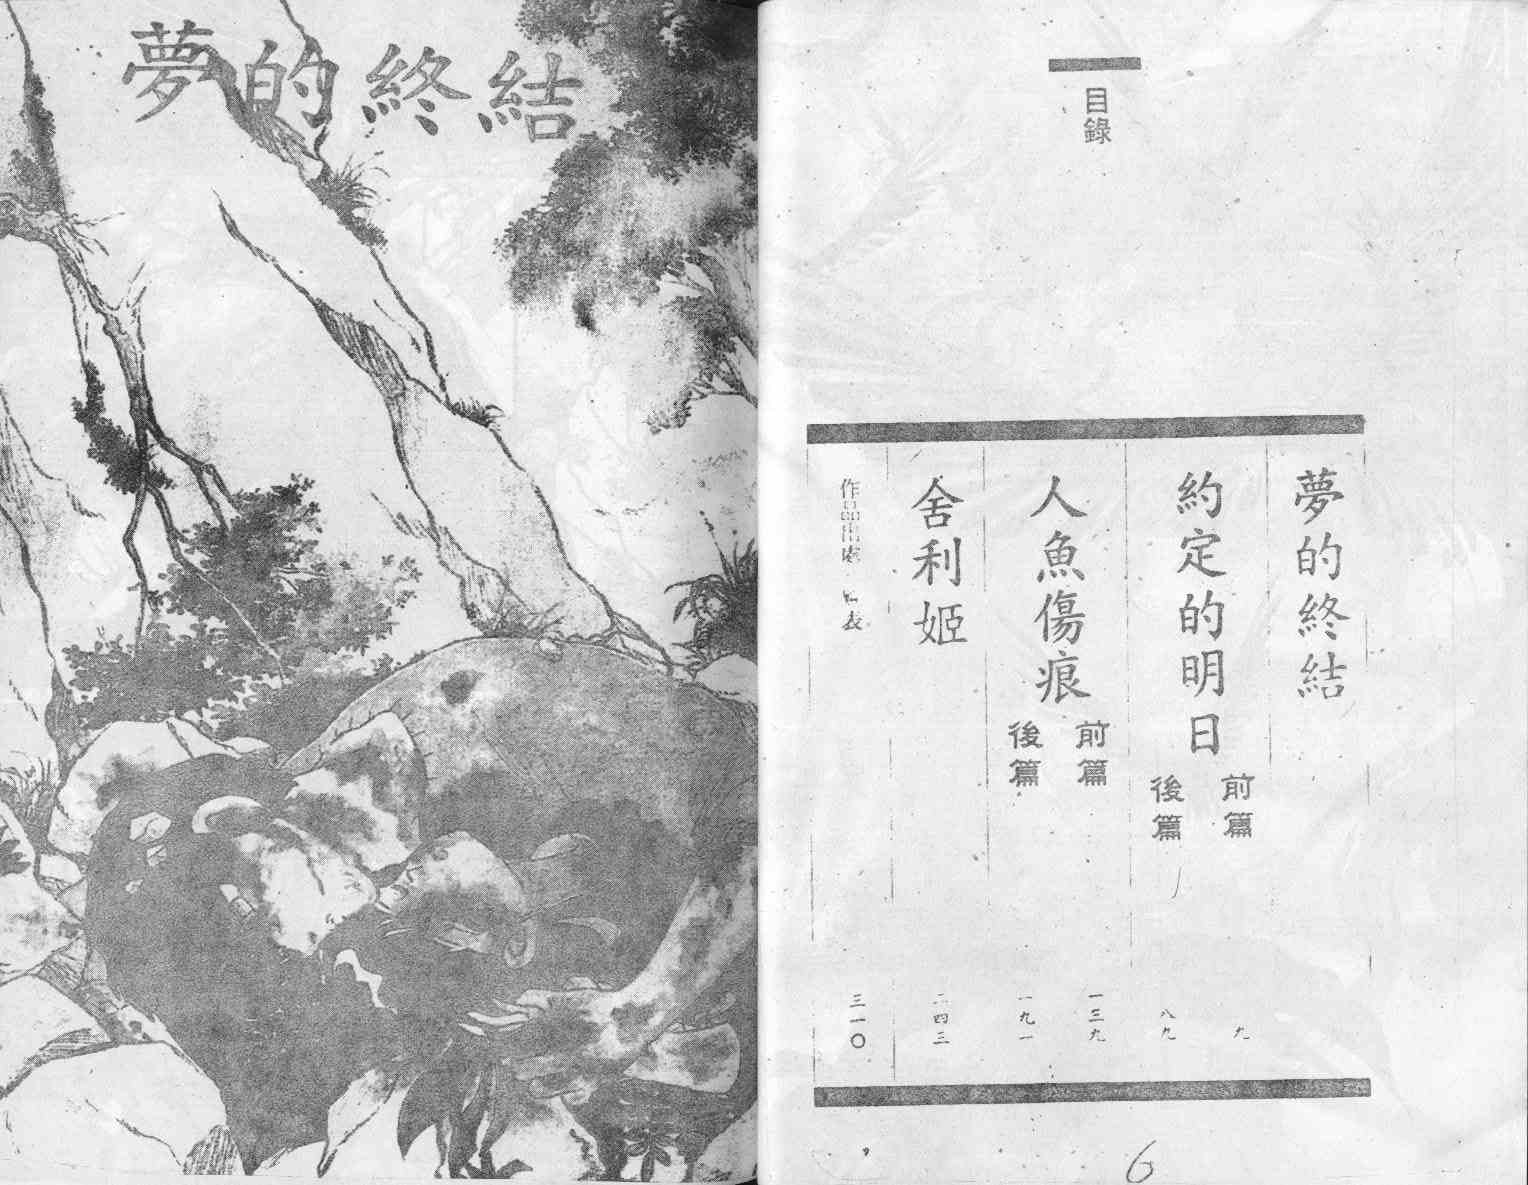 夢的終結
目錄
夢的終結
約定的明日
前篇
後篇
人魚傷痕
前篇
後篇
舍利姬
作品出處 表
九
八九
一三九
一九一
二四三
三一〇
6